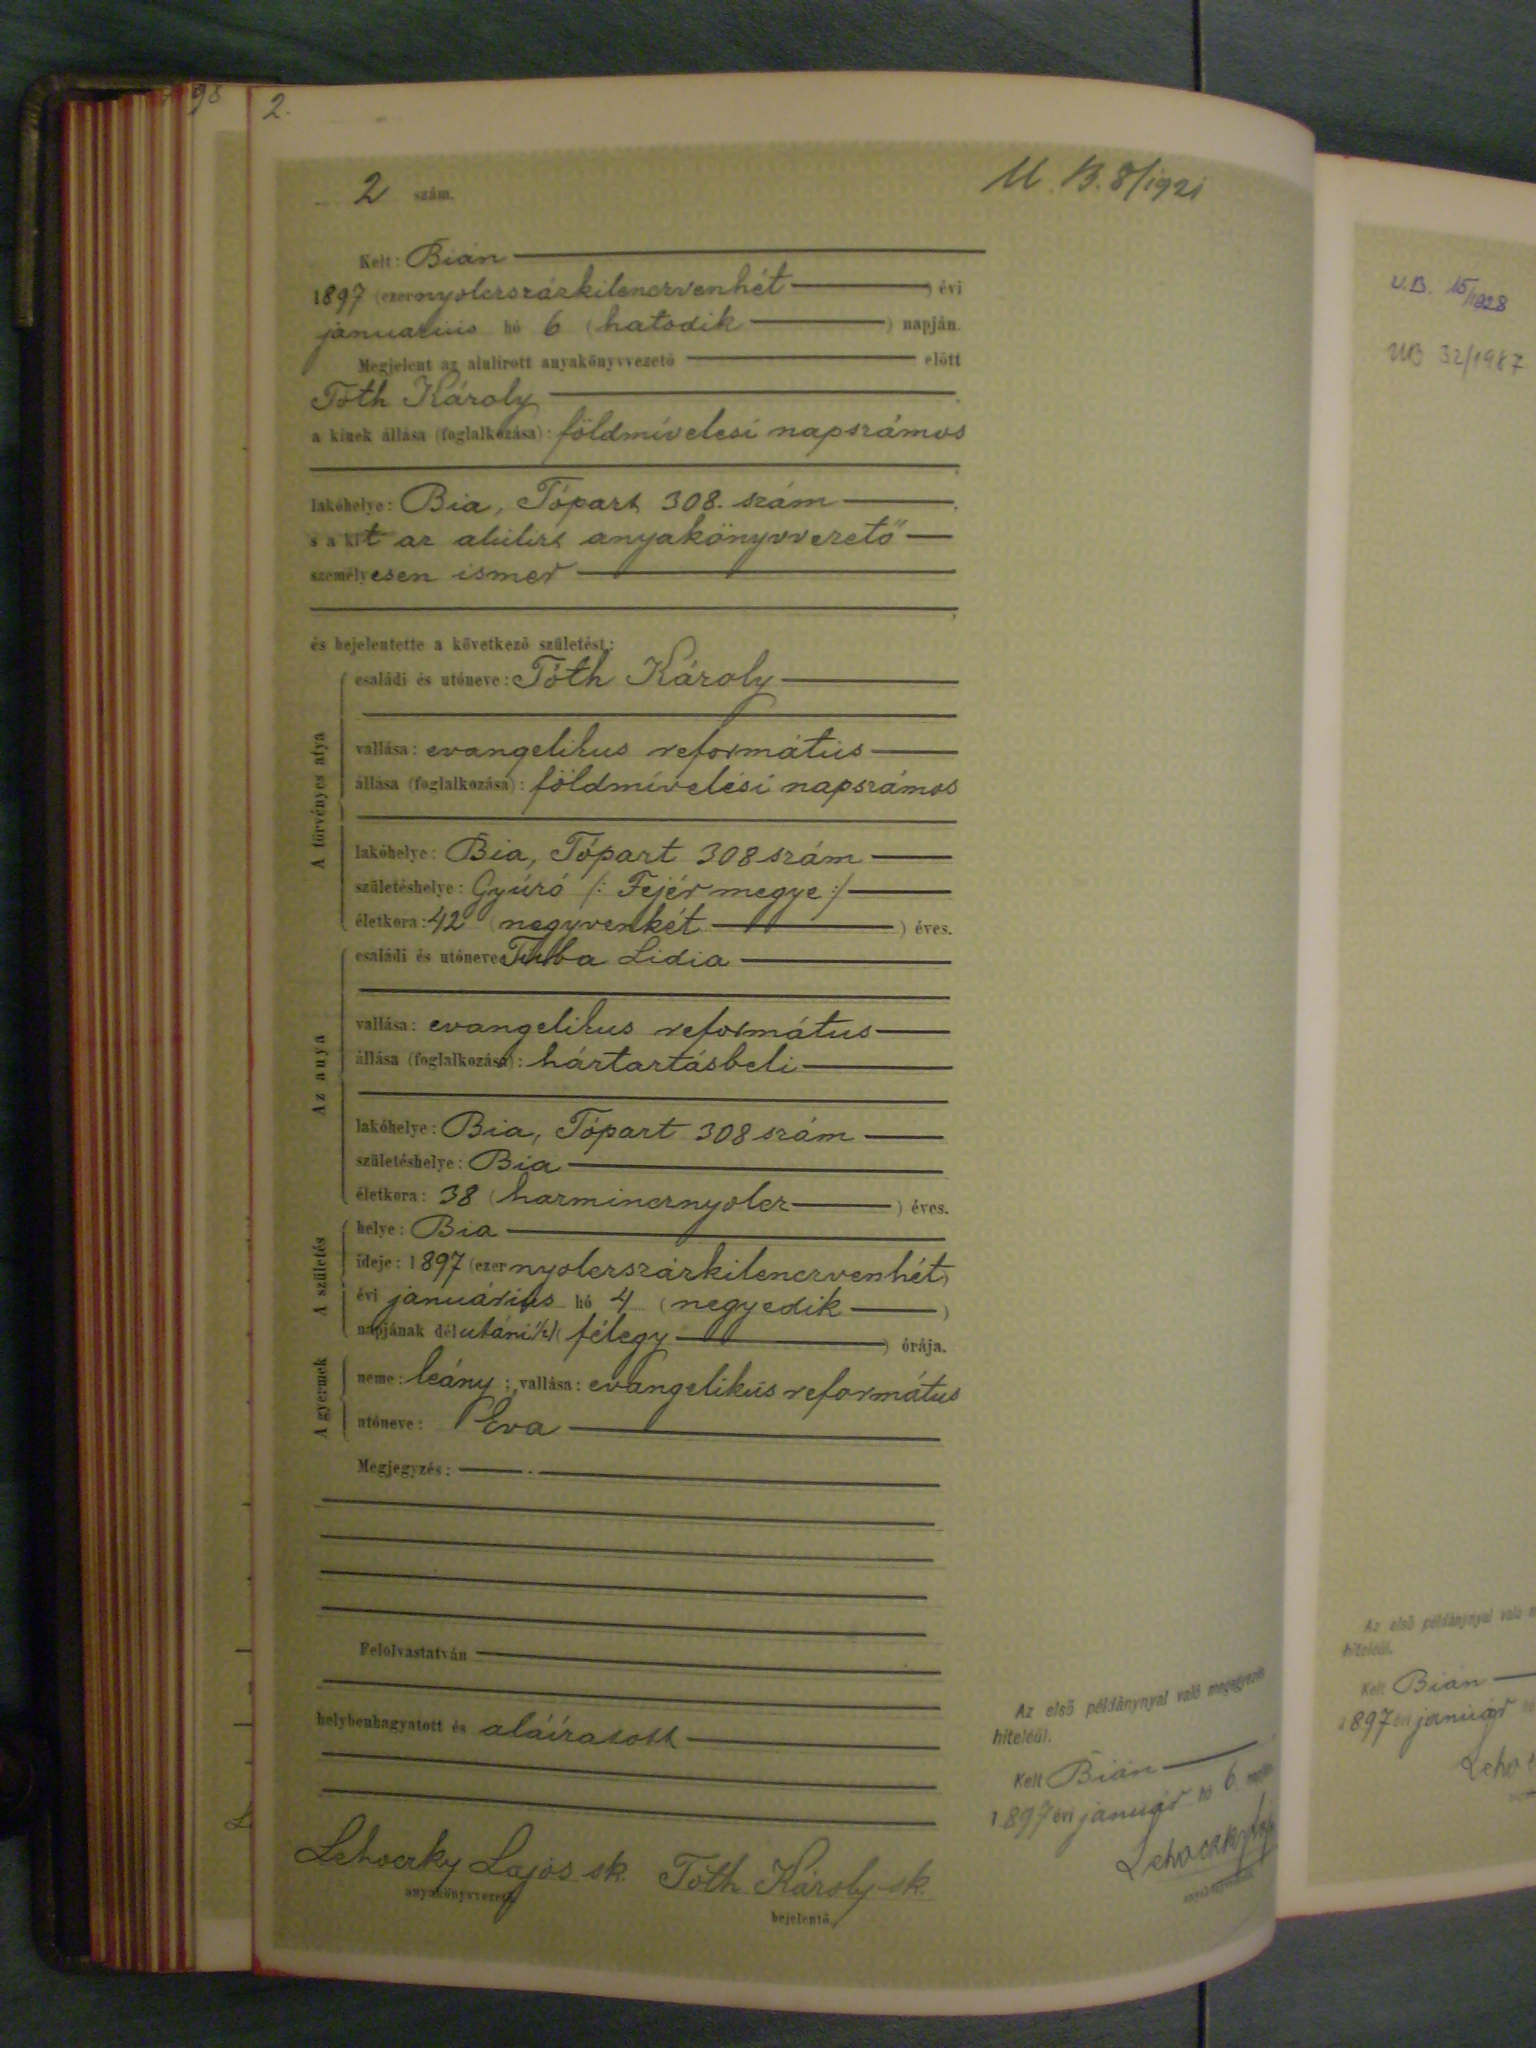 98
2.
2 szám.
U. B. 8/1921
Kelt: Bián
1897 (ezernyolcszázkilencvenhét) évi
januárius hó 6 (hatodik) napján.
Megjelent az alulirott anyakönyvvezető előtt
Tóth Károly
a kinek állása (foglalkozása): földmívelesi napszámos
lakóhelye: Bia, Tópart 308. szám
s a kit az alulirt anyakönyvvezető
személyesen ismer
és bejelentette a következő születést:
A törvényes atya
családi és utóneve: Tóth Károly
vallása: evangelikus református
állása (foglalkozása): földmívelési napszámos
lakóhelye: Bia, Tópart 308 szám
születéshelye: Gyúró /: Fejér megye :/
életkora: 42 (negyvenkét) éves.
Az anya
családi és utóneve Lidia
vallása: evangelikus református
állása (foglalkozása): háztartásbeli
lakóhelye: Bia, Tópart 308 szám
születéshelye: Bia
életkora: 38 (harmincznyolcz) éves.
A születés
helye: Bia
ideje: 1897 (ezernyolczszázkilenczvenhét)
évi januárius hó 4 (negyedik)
napjának délutáni ½1 (félegy) órája.
A gyermek
neme: leány; vallása: evangelikus református
utóneve: Éva
Megjegyzés:
Felolvastatván
helybenhagyatott és aláíratott
Lehoczky Lajos sk. Tóth Károly sk.
anyakönyvvezető bejelentő.
Az első példánynyal való megegyezés
hiteléül.
Kelt Bián
1897 évi január hó 6 napján
Lehoczky Laj
U.B. 15/1928
UB 32/1987
Az első példánynyal való
hiteléül.
Kelt Bián
1897 évi január
Leho